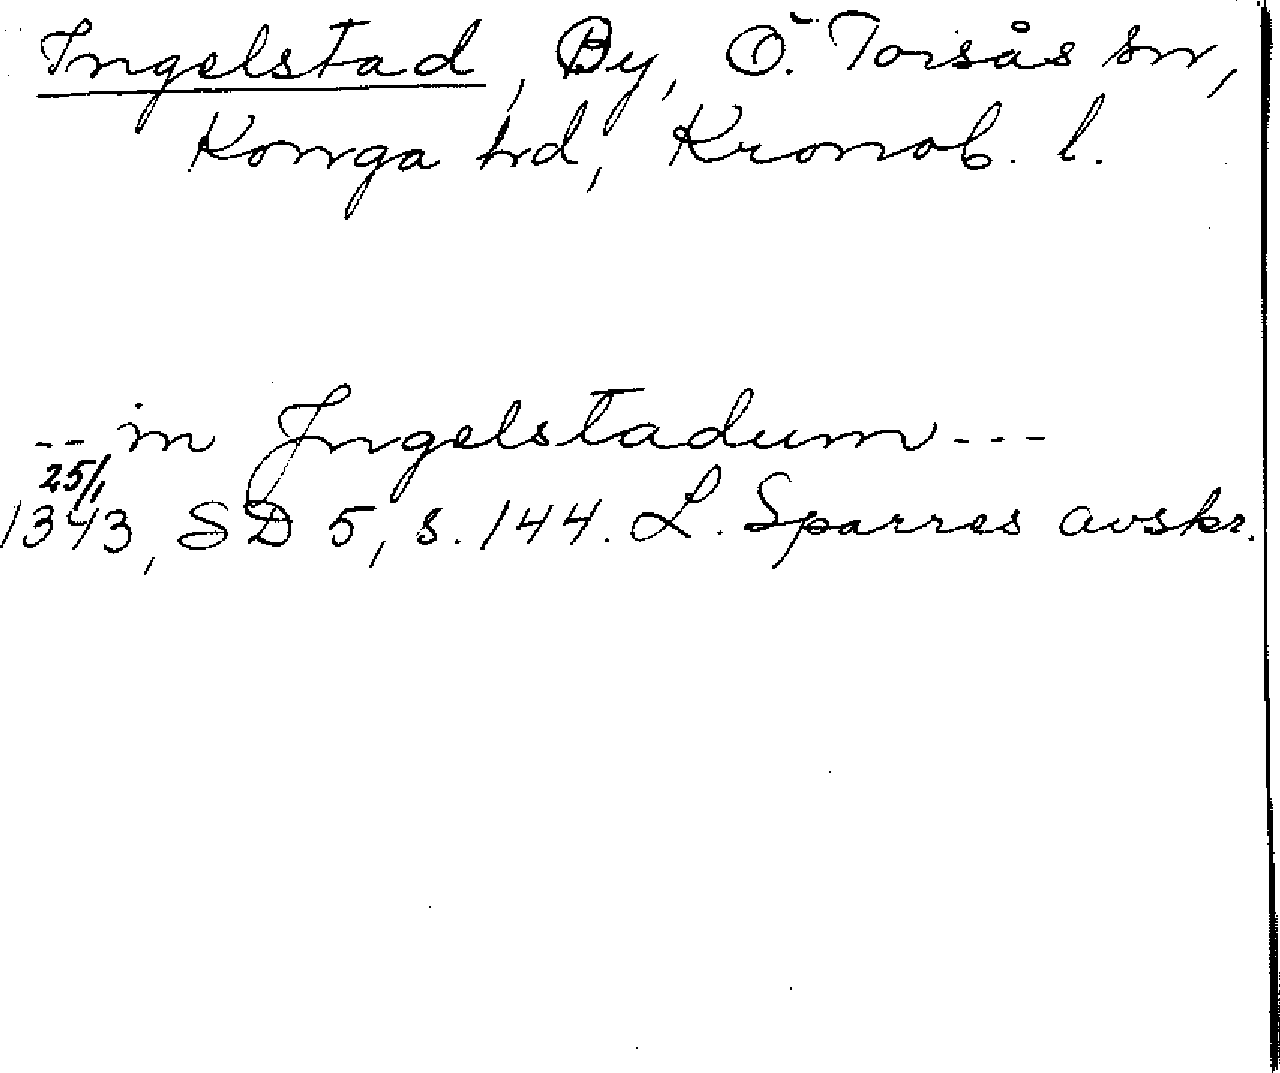 Ingelstad, By, Ö. Torsås sn,
Konga hd, Kronob. l.
-- in Ingelstadum ---
25/1
1343, SD 5, s. 144. L. Sparres avskr.